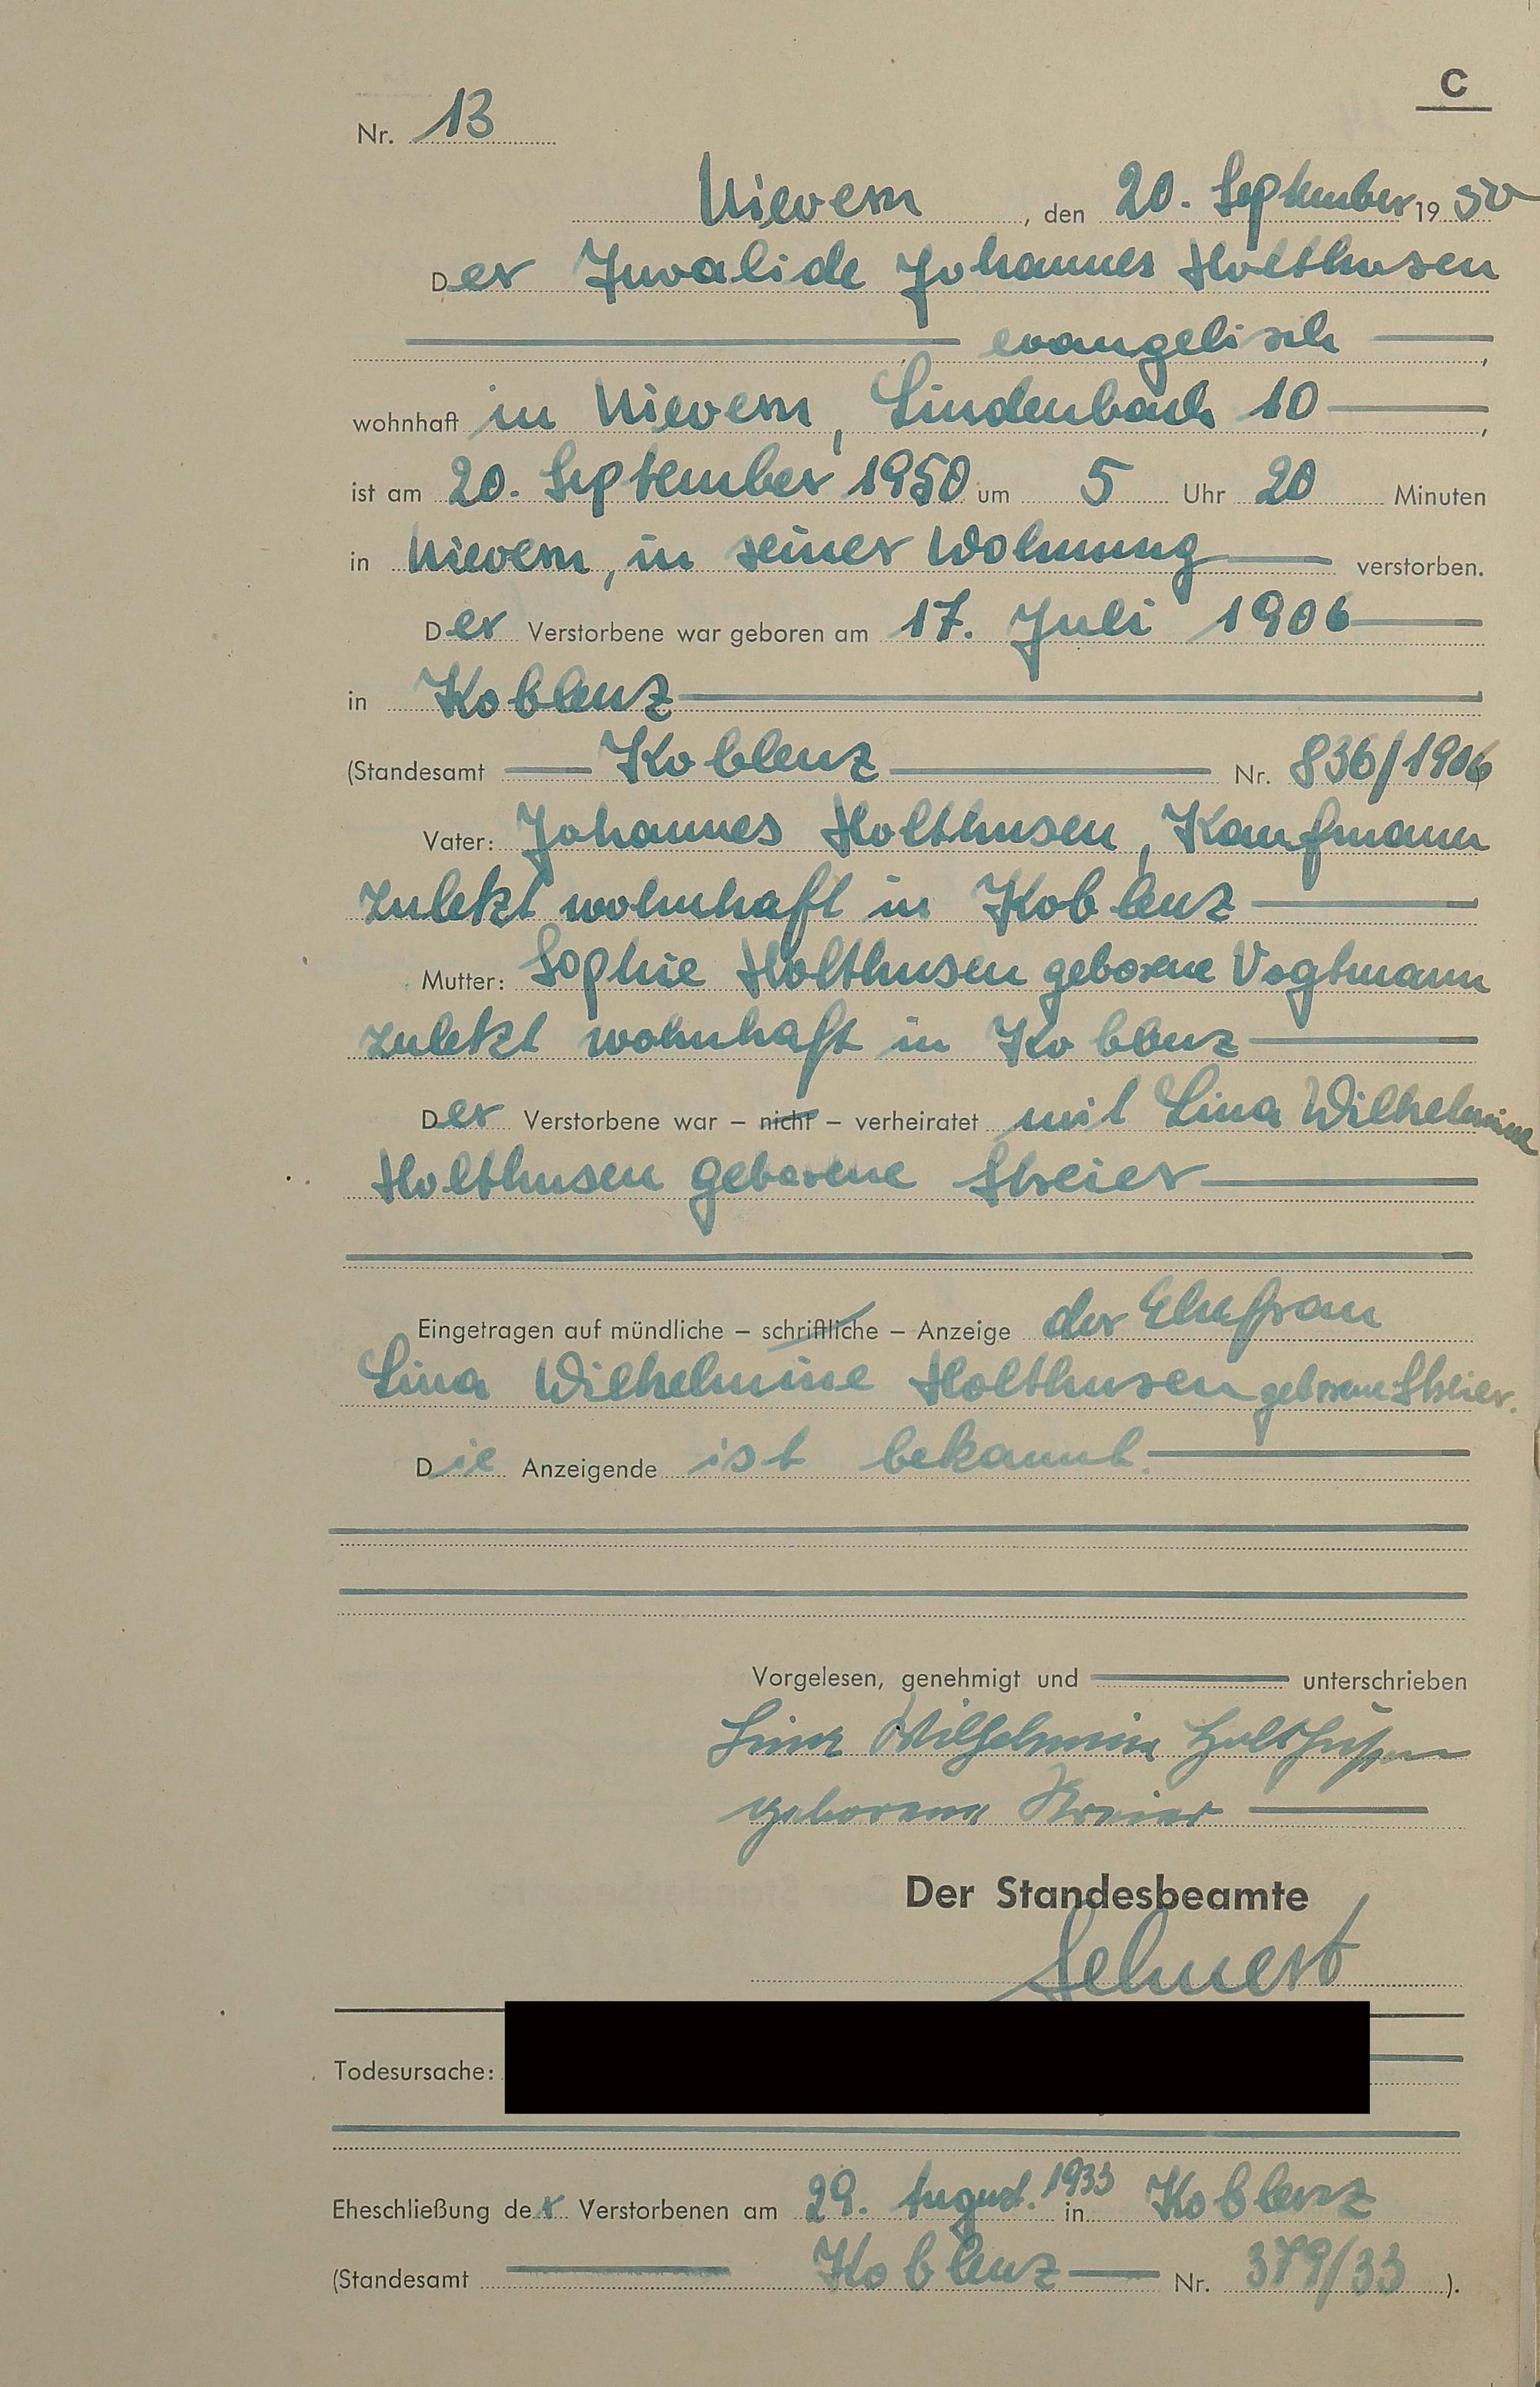 C
Nr. 13
Nievern, den 20. September 1950
Der Invalide Johannes Holthusen
evangelisch,
wohnhaft in Nievern, Lindenbach 10,
ist am 20. September 1950 um 5 Uhr 20 Minuten
in Nievern, in seiner Wohnung verstorben.
Der Verstorbene war geboren am 17. Juli 1906
in Koblenz
(Standesamt Koblenz Nr. 836/1906
Vater: Johannes Holthusen, Kaufmann
zuletzt wohnhaft in Koblenz
Mutter: Sophie Holthusen geborene Vogtmann
zuletzt wohnhaft in Koblenz
Der Verstorbene war – nicht – verheiratet mit Lina Wilhelmine
Holthusen geborene Streier
Eingetragen auf mündliche – schriftliche – Anzeige der Ehefrau
Lina Wilhelmine Holthusen geborene Streier.
Die Anzeigende ist bekannt.
Vorgelesen, genehmigt und unterschrieben
Lina Wilhelmine Holthusen
geborene Streier
Der Standesbeamte
Todesursache:
Eheschließung des Verstorbenen am 29. August. 1933 in Koblenz
(Standesamt Koblenz Nr. 379/33).